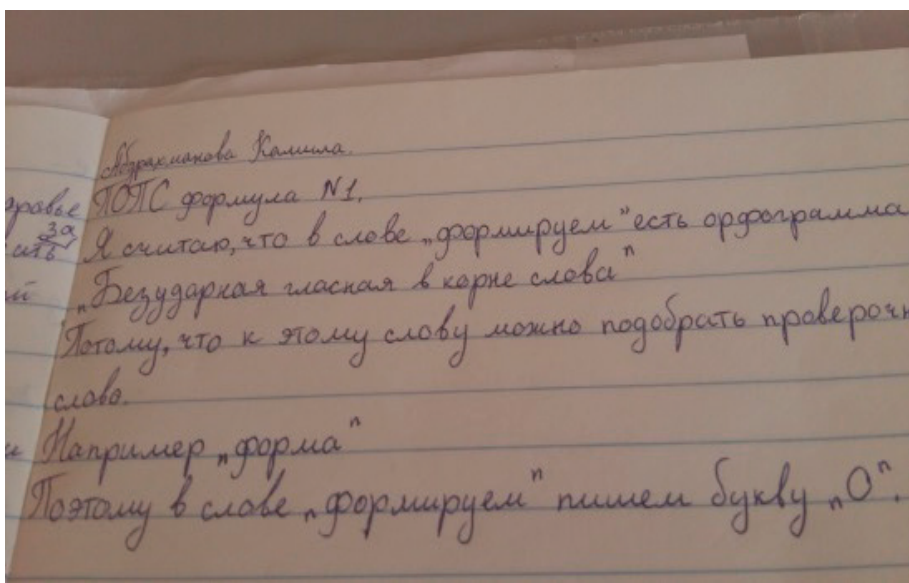 Абдрахманова Камила.
ПОПС формула №1.
Я считаю, что в слове „формируем" есть орфограмма
„Безударная гласная в корне слова"
Потому, что к этому слову можно подобрать проверочн
слово.
Например „форма"
Поэтому в слове „формируем" пишем букву „О".